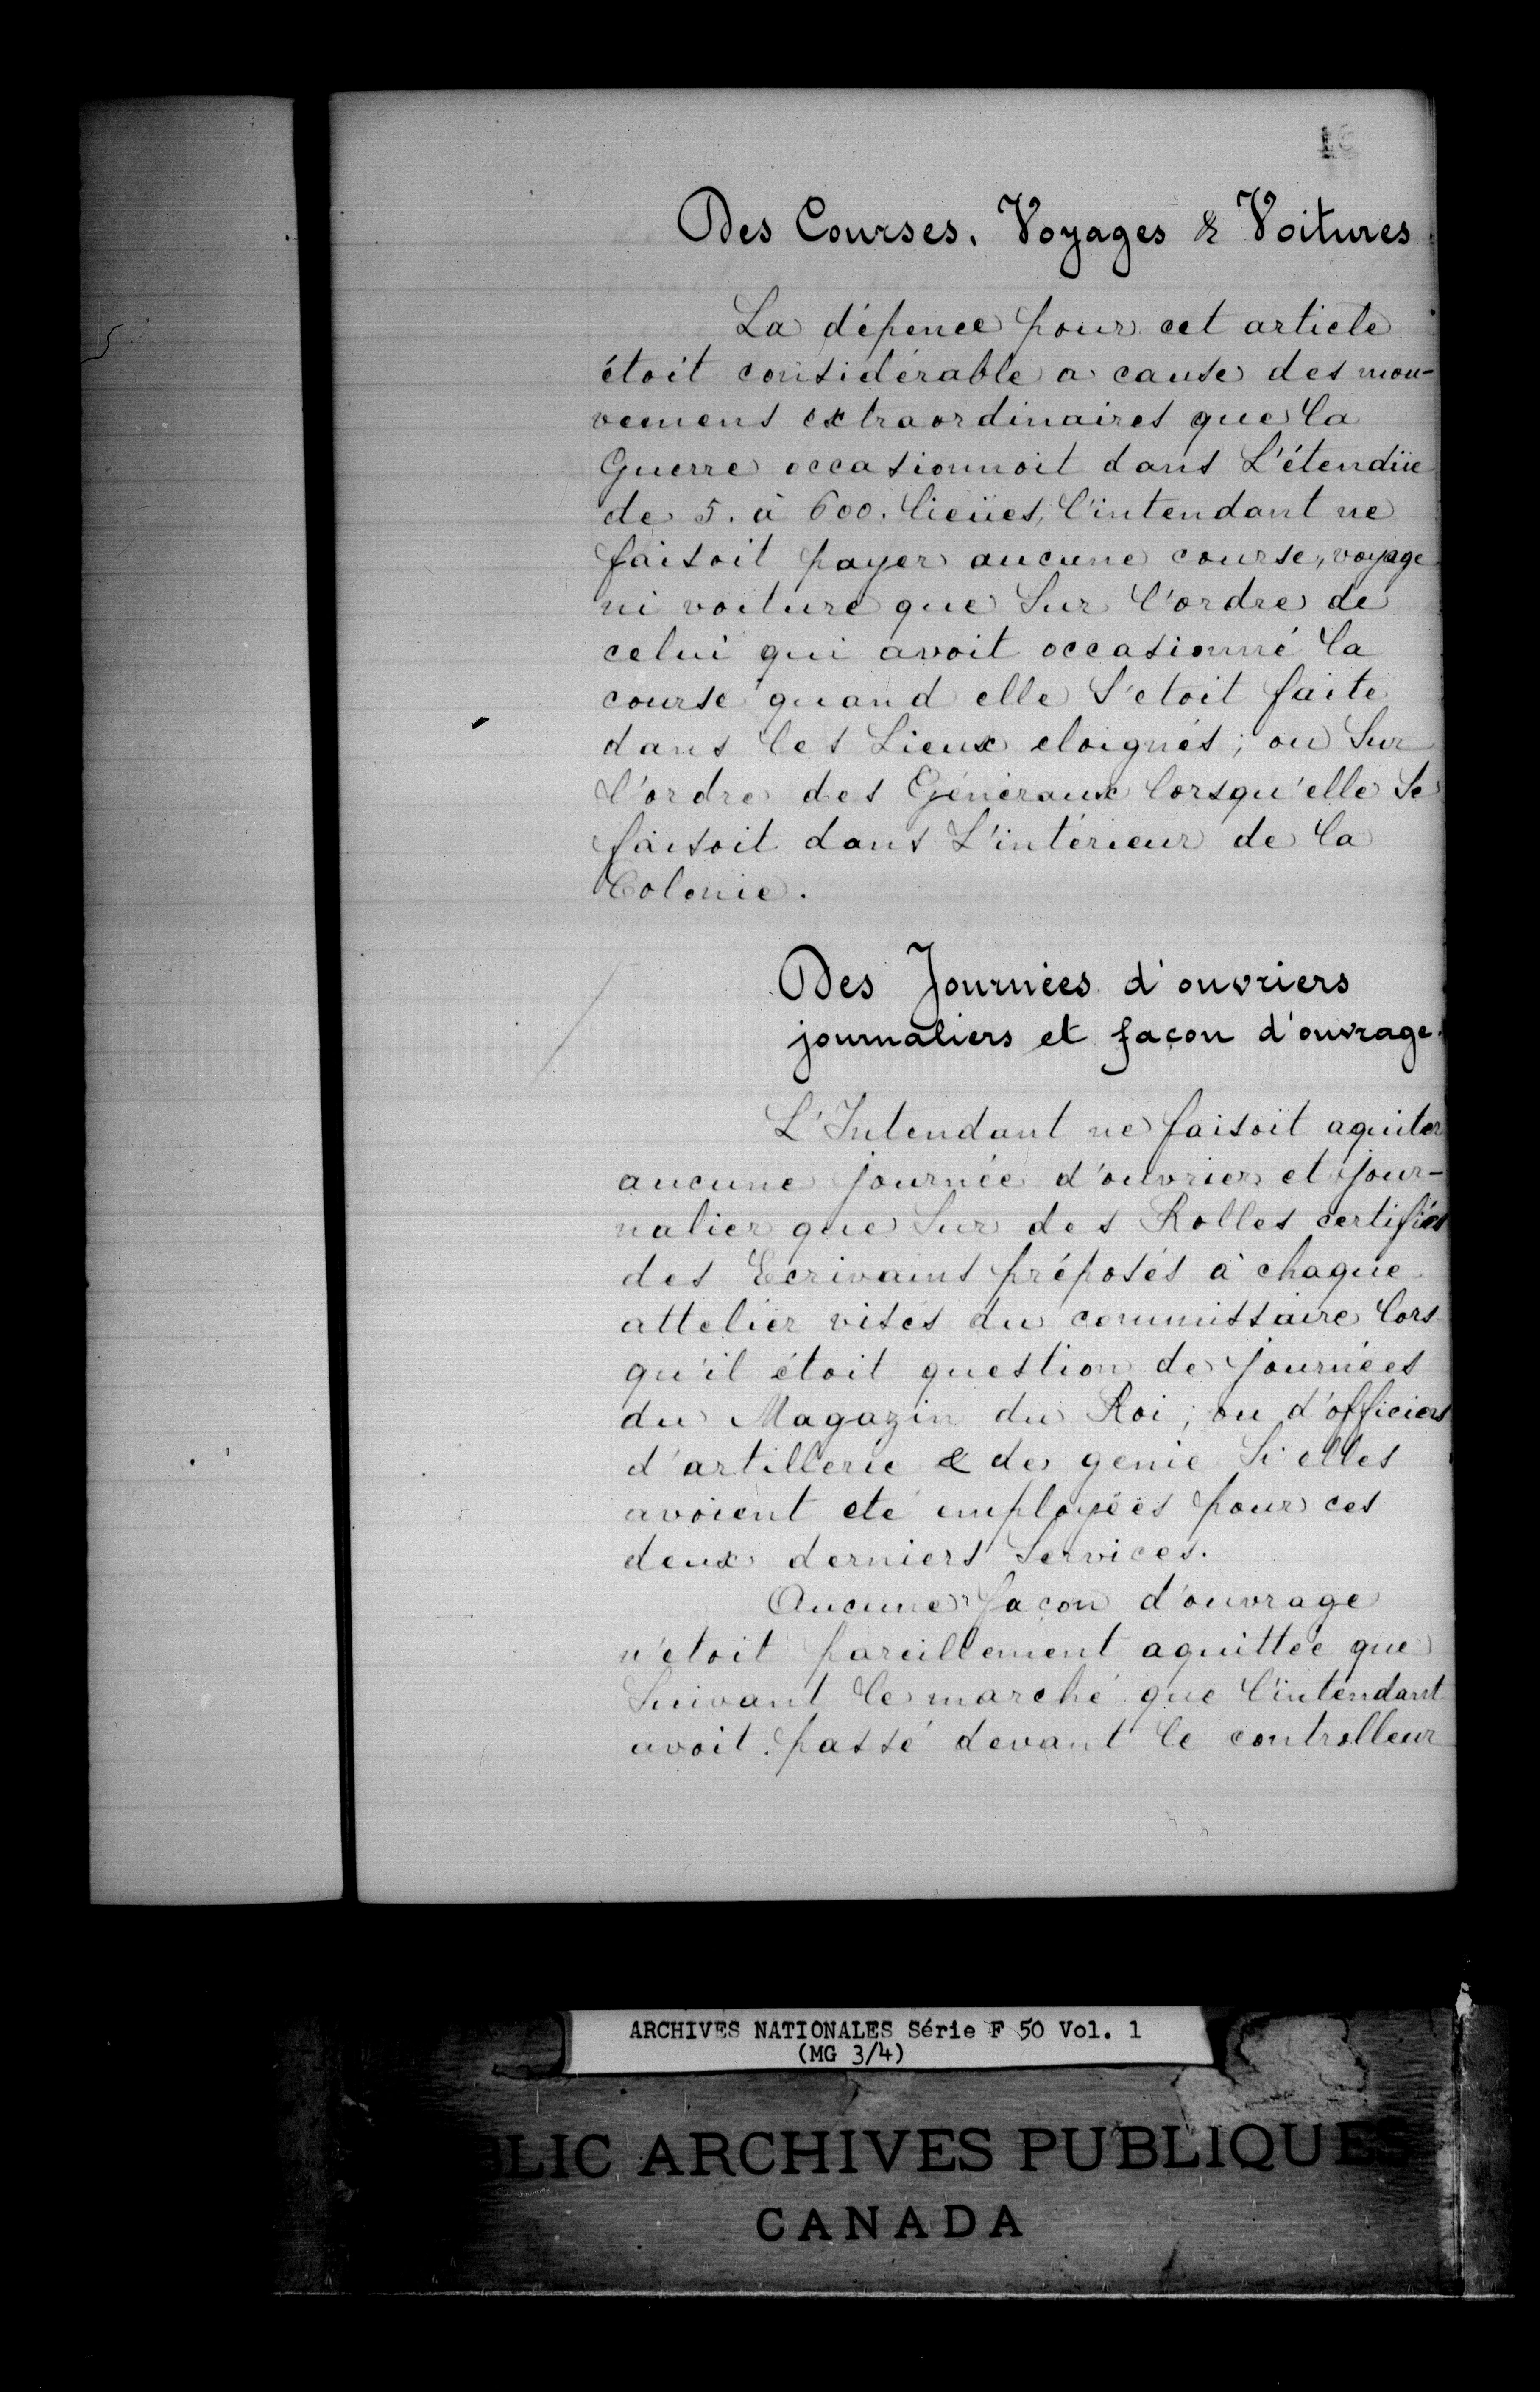 16
Des Courses. Voyages & Voitures.
La dépence pour cet article
étoit considérable a cause des mou-
vemens extraordinaires que la
Guerre occasionnoit dans L'étendüe
de 5. à 600. lieües, l'intendant ne
faisoit payer aucune course, voyage
ni voiture que Sur l'ordre de
celui qui avoit occasionné la
course quand elle S'etoit faite
dans les Lieux eloignés; ou Sur
l'ordre des Généraux lorsqu'elle Se
faisoit dans L'intérieur de la
Colonie.
Des Journées d'ouvriers
journaliers et façon d'ouvrage.
L'Intendant ne faisoit aquiter
aucune journée d'ouvrier et jour-
nalier que Sur des Rolles certifiés
des Ecrivains préposés à chaque
attelier visés du commissaire lors-
qu'il étoit question de journées
du Magazin du Roi; ou d'officiers
d'artillerie & de genie Si elles
avoient eté employées pour ces
deux derniers Services.
Aucune façon d'ouvrage
n'etoit pareillement aquittée que
Suivant le marché que l'intendant
avoit passé devant le controlleur
ARCHIVES NATIONALES Série F 50 Vol. 1
(MG 3/4)
LIC ARCHIVES PUBLIQUES
CANADA